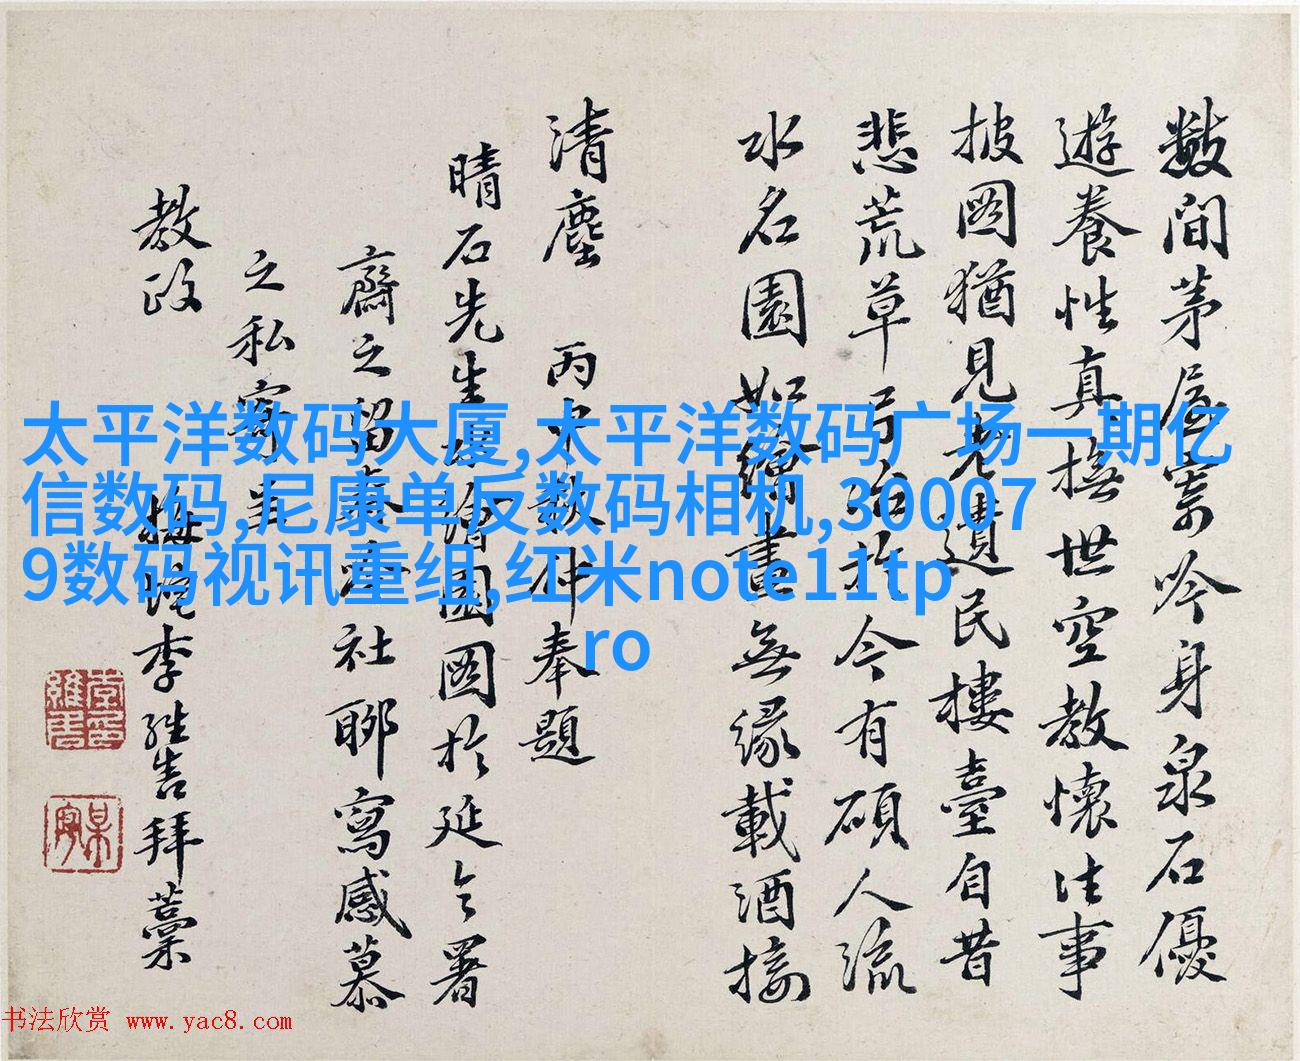 數間茅屋寄吟身泉石優
遊養性真撫世空教懷往事
披圖猶見老遺民樓臺自昔
悲荒草弓冶於今有碩人流
水名園如繪畫無緣載酒接
清塵 丙 奉題
晴石先生 繪園圖於延令署
齋之留 社聊寫感慕
之私寄
教政
李 拜藁
太平洋数码大厦,太平洋数码广场一期亿
信数码,尼康单反数码相机,30007
9数码视讯重组,红米note11tp
ro
书法欣赏 www.yac8.com